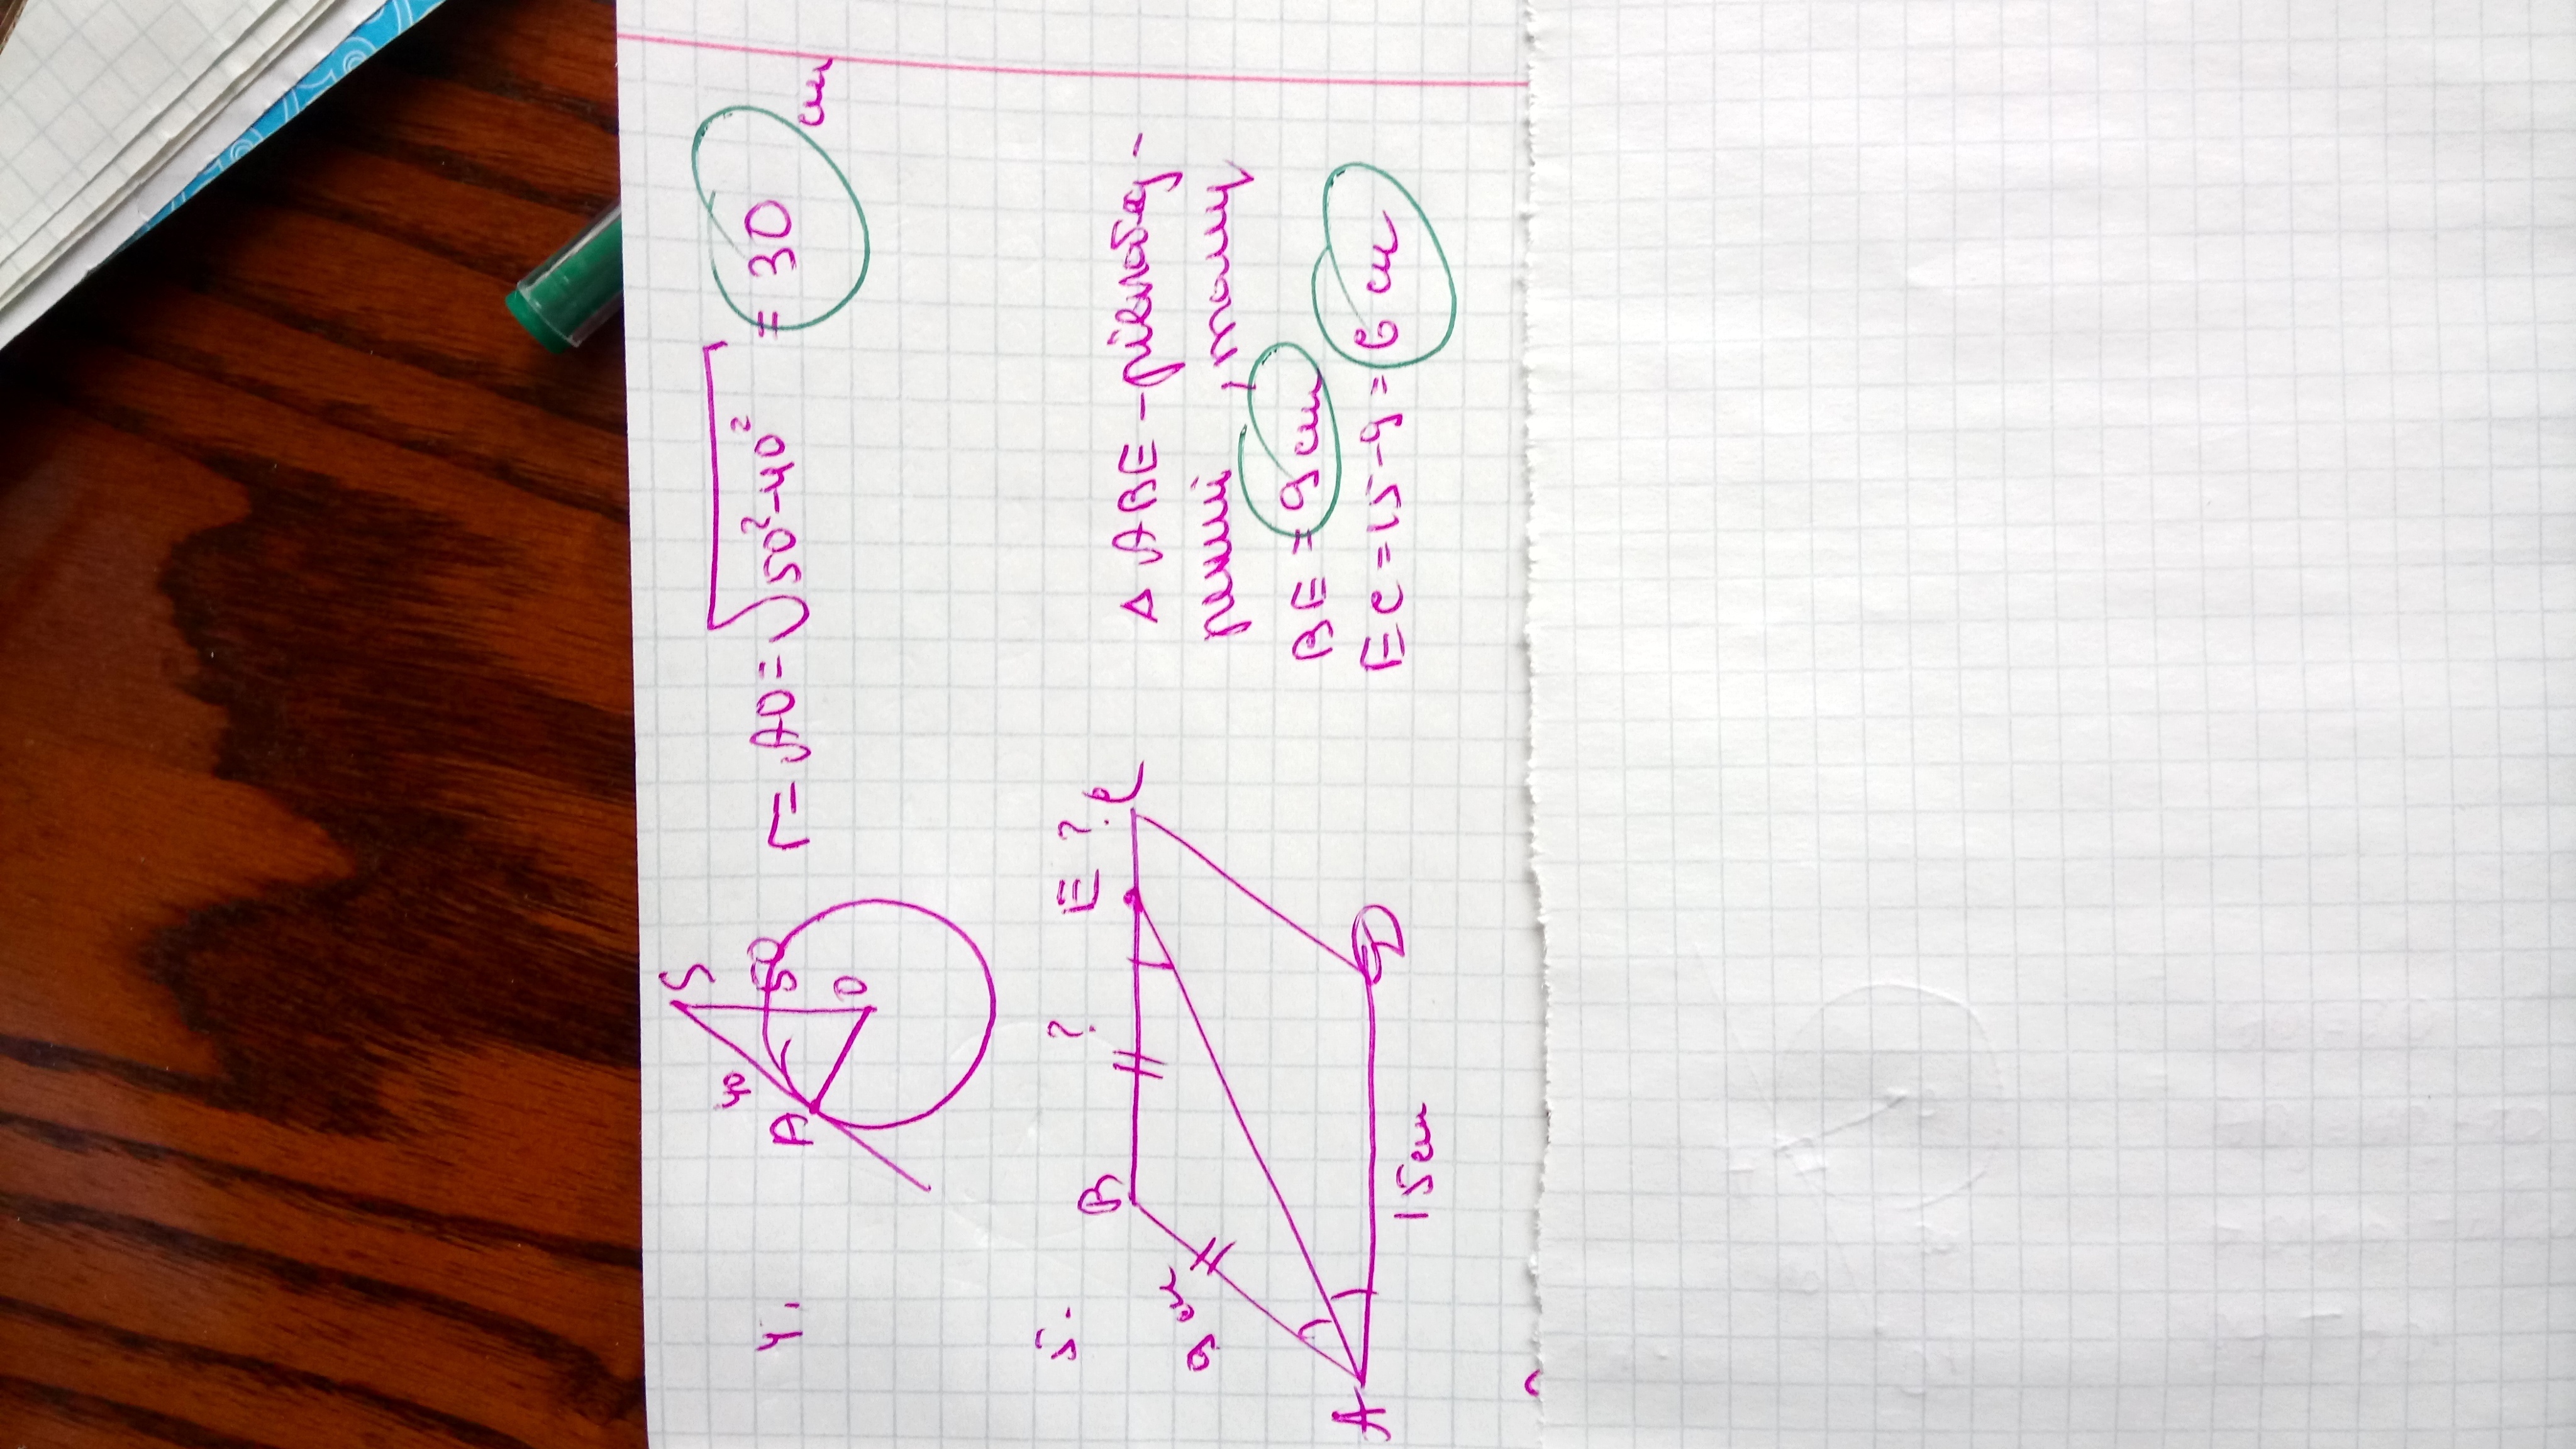 4. S 50 40 A O r = AO = √50²-40² = 30 см
5. B ? E ? C
9 см
A 15 см D
Δ ABE - рівнобед-
рений, тому
BE = 9 см
EC = 15-9 = 6 см